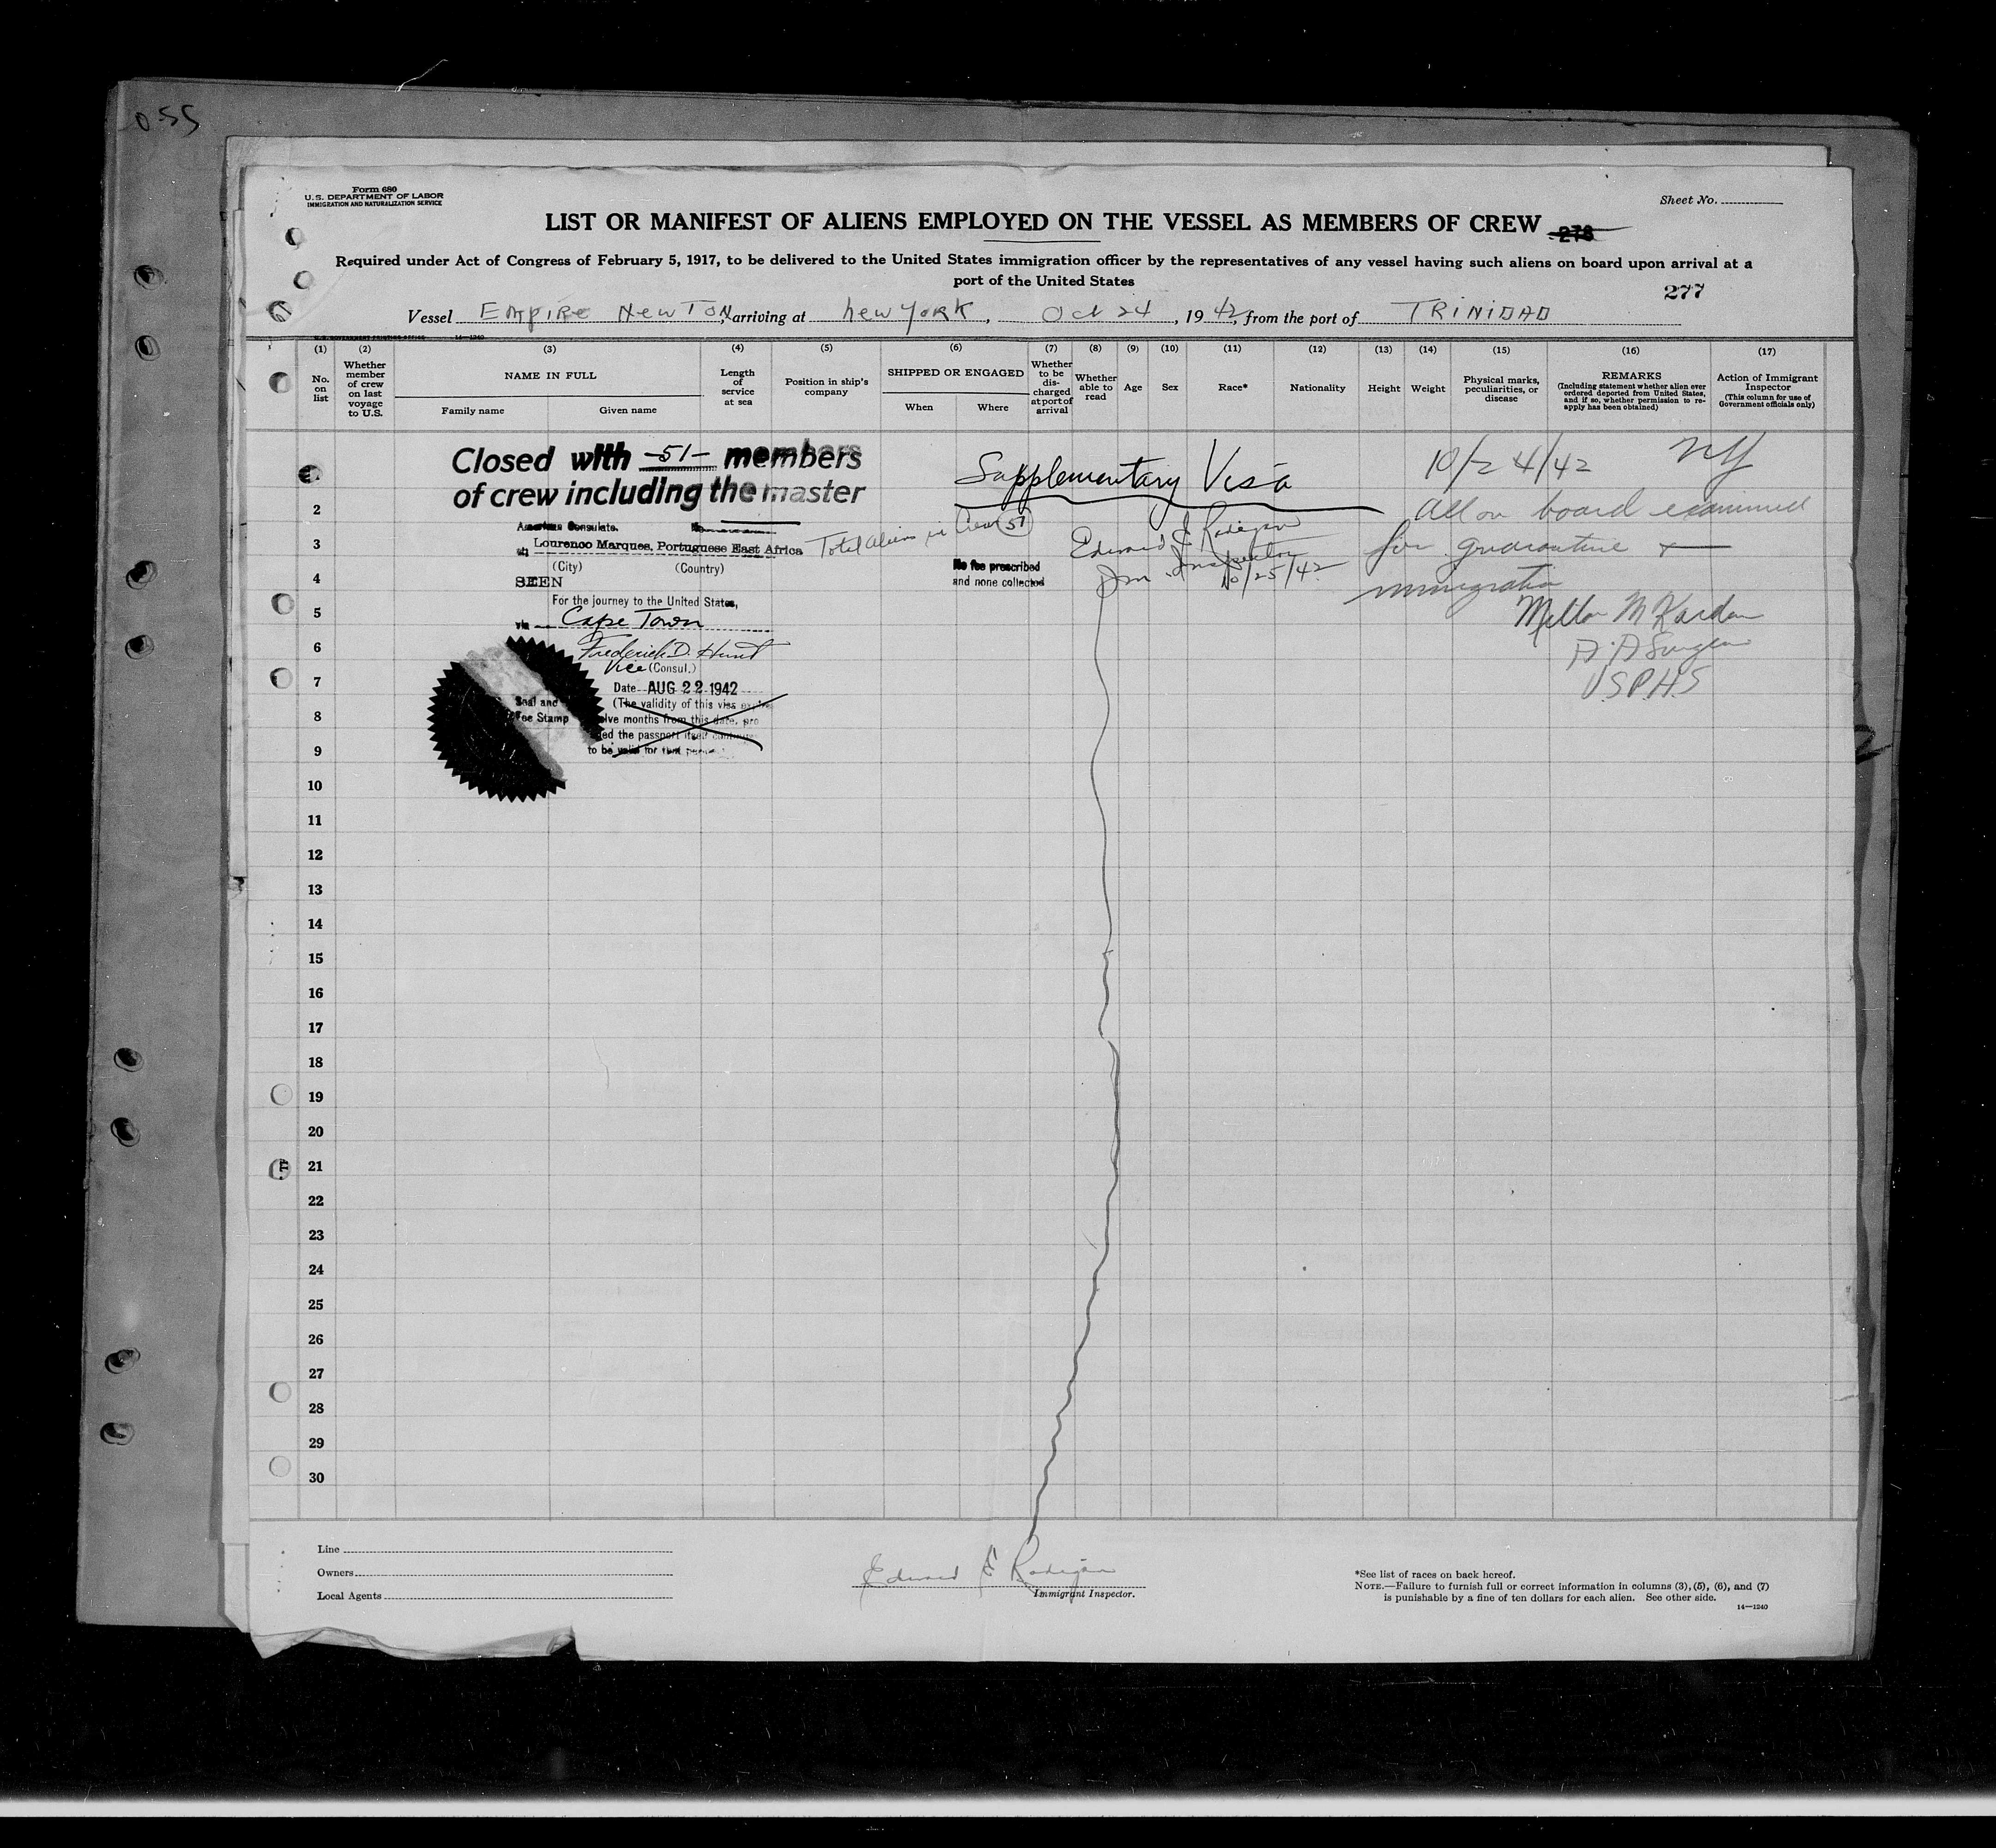 055
Form 680
U.S. DEPARTMENT OF LABOR
IMMIGRATION AND NATURALIZATION SERVICE
Sheet No.
LIST OR MANIFEST OF ALIENS EMPLOYED ON THE VESSEL AS MEMBERS OF CREW
278
Required under Act of Congress of February 5, 1917, to be delivered to the United States immigration officer by the representatives of any vessel having such aliens on board upon arrival at a
port of the United States
277
Vessel EMPIRE NEWTON, arriving at New York, Oct 24, 1942, from the port of TRINIDAD
U.S. GOVERNMENT PRINTING OFFICE 14—1240
(1) (2) (3) (4) (5) (6) (7) (8) (9) (10) (11) (12) (13) (14) (15) (16) (17)
No. on list
Whether member of crew on last voyage to U.S.
NAME IN FULL
Family name
Given name
Length of service at sea
Position in ship's company
SHIPPED OR ENGAGED
When
Where
Whether to be discharged at port of arrival
Whether able to read
Age
Sex
Race*
Nationality
Height
Weight
Physical marks, peculiarities, or disease
REMARKS
(Including statement whether alien ever ordered deported from United States, and if so, whether permission to reapply has been obtained)
Action of Immigrant Inspector
(This column for use of Government officials only)
Closed with -51- members
of crew including the master
American Consulate. No.
at Lourenco Marques, Portuguese East Africa
(City) (Country)
SEEN
For the journey to the United States,
via Cape Town
Frederick D. Hunt
Vice (Consul.)
Date AUG 22 1942
(The validity of this visa
months from this date,
the passport itself
to be valid for that
Seal and
Fee Stamp
Total aliens in Crew 51
Supplementary Visa
No fee prescribed
and none collected
Edward E Rodigan
Imm. Inspector
10/25/42
10/24/42 NY
All on board examined
for quarantine +
immigration
A A Surgeon
USPHS
2
3
4
5
6
7
8
9
10
11
12
13
14
15
16
17
18
19
20
21
22
23
24
25
26
27
28
29
30
Line
Owners
Local Agents
Edward E Rodigan
Immigrant Inspector.
*See list of races on back hereof.
NOTE.—Failure to furnish full or correct information in columns (3), (5), (6), and (7)
is punishable by a fine of ten dollars for each alien. See other side.
14—1240